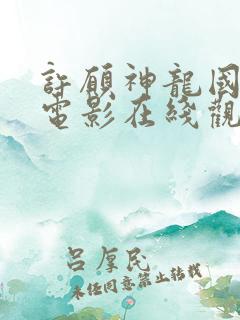 許願神龍國
電影在綫觀
呂厚民
未經同意禁止轉載